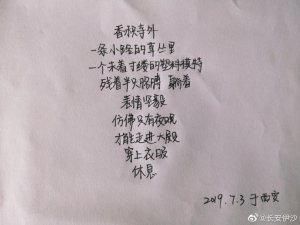 香积寺外
一条小路的草丛里
一个未着寸缕的塑料模特
残着半只胳膊 躺着
表情坚毅
仿佛只有夜晚
才能走进大殿
穿上衣服
休息
2019.7.3 于西安
@长安伊沙